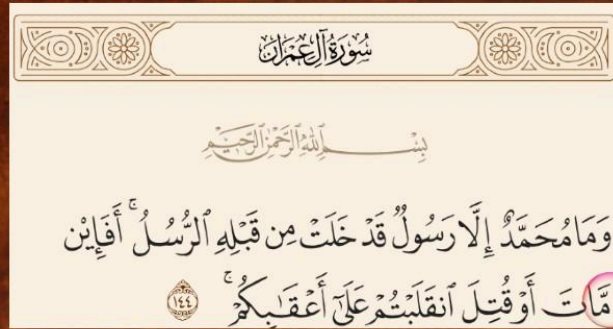 سُورَةُ آلِ عِمْرَانَ
بِسْمِ ٱللَّهِ ٱلرَّحْمَٰنِ ٱلرَّحِيمِ
وَمَا مُحَمَّدٌ إِلَّا رَسُولٌ قَدْ خَلَتْ مِن قَبْلِهِ ٱلرُّسُلُ ۚ أَفَإِيْن
مَّاتَ أَوْ قُتِلَ ٱنقَلَبْتُمْ عَلَىٰٓ أَعْقَٰبِكُمْ ۚ ١٤٤